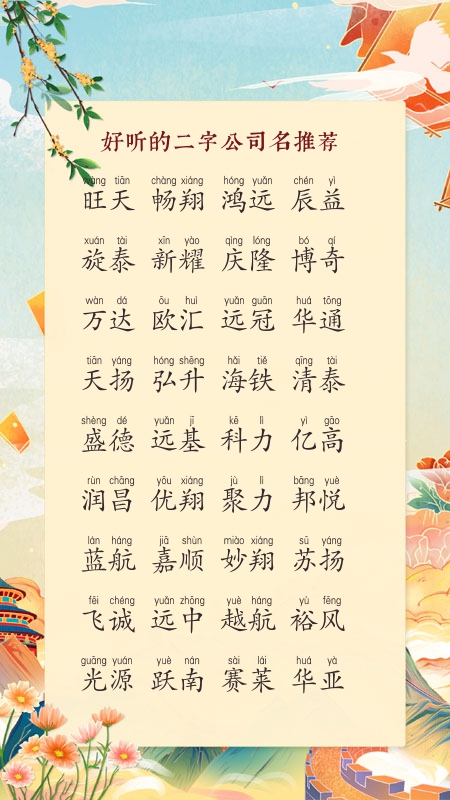 好听的二字公司名推荐
wàng tiān chàng xiáng hóng yuǎn chén yì
旺天 畅翔 鸿远 辰益
xuán tài xīn yào qìng lóng bó qí
旋泰 新耀 庆隆 博奇
wàn dá ōu huì yuǎn guān huá tōng
万达 欧汇 远冠 华通
tiān yáng hóng shēng hǎi tiě qīng tài
天扬 弘升 海铁 清泰
shèng dé yuǎn jī kē lì yì gāo
盛德 远基 科力 亿高
rùn chāng yōu xiáng jù lì bāng yuè
润昌 优翔 聚力 邦悦
lán háng jiā shùn miào xiáng sū yáng
蓝航 嘉顺 妙翔 苏扬
fēi chéng yuǎn zhōng yuè háng yù fēng
飞诚 远中 越航 裕风
guāng yuán yuè nán sài lái huá yà
光源 跃南 赛莱 华亚